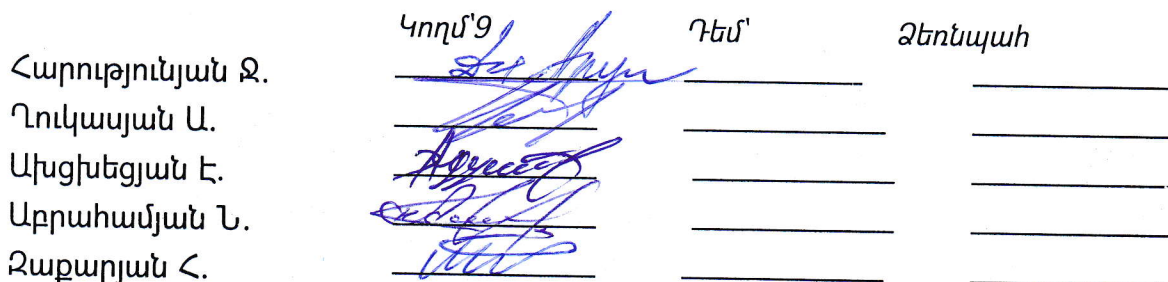 Կողմ՝9 Դեմ՝ Ձեռնպահ
Հարությունյան Ջ.
Ղուկասյան Ա.
Ախցխեցյան Է.
Աբրահամյան Ն.
Զաքարյան Հ.